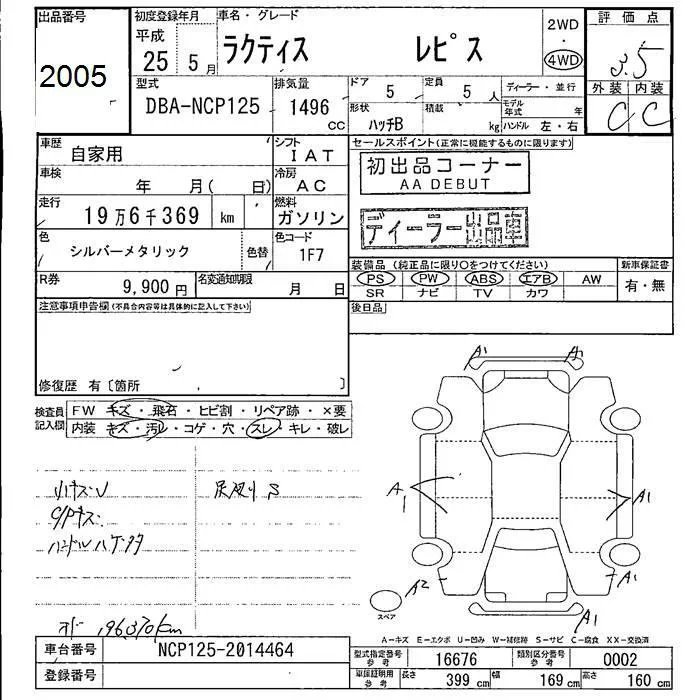 出品番号
2005
初度登録年月
平成
25 5 月
車名・グレード
ラクティス レピス
2WD
・
4WD
評価点
3.5
外装 内装
C C
型式
DBA-NCP125
排気量
1496
CC
ドア
5
定員
5 人
形状
ハッチB
積載
kg
ディーラー・並行
モデル
年式 年
ハンドル 左・右
車歴
自家用
シフト
IAT
車検
年 月( 日)
冷房
AC
走行
19万6千369 km
燃料
ガソリン
色
シルバーメタリック
色替
色コード
1F7
R券
9,900 円
名変通知期限
月 日
セールスポイント(正常に機能するものに限ります)
初出品コーナー
AA DEBUT
ディーラー出品車
装備品 (純正品に限り○をつけてください)
PS PW ABS エアB AW
SR ナビ TV カワ
新車保証書
有・無
後日品
注意事項申告欄(不具合内容等は具体的に記入して下さい)
修復歴 有〔箇所 〕
検査員
記入欄
FW キズ・飛石・ヒビ割・リペア跡・×要
内装 キズ・汚レ・コゲ・穴・スレ・キレ・破レ
小キズU
C/Pキズ
ハンドルハゲ
S
196370km
A1 A1
A1 A1
A2 A1
A1
スペア
A-キズ E-エクボ U-凹み W-補修跡 S-サビ C-腐食 XX-交換済
車台番号
NCP125-2014464
登録番号
型式指定番号
参考
16676
類別区分番号
参考
0002
車庫証明用
参考
長さ 399 cm
幅 169 cm
高さ 160 cm